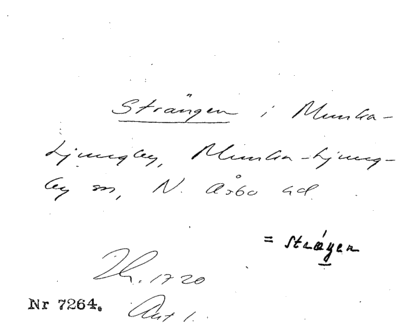 Strängen i Munka-
Ljungby, Munka-Ljung-
by sn, N. Åsbo hd.
= Strägen
Jb. 1720
Nr 7264. Ant 1.